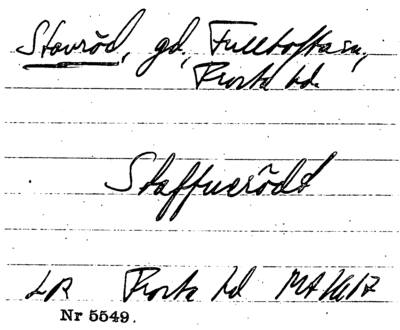 Stavröd, gd, Fulltofta sn,
Frosta hd.
Staffuerödt
LR Frosta hd MA
Nr 5549.